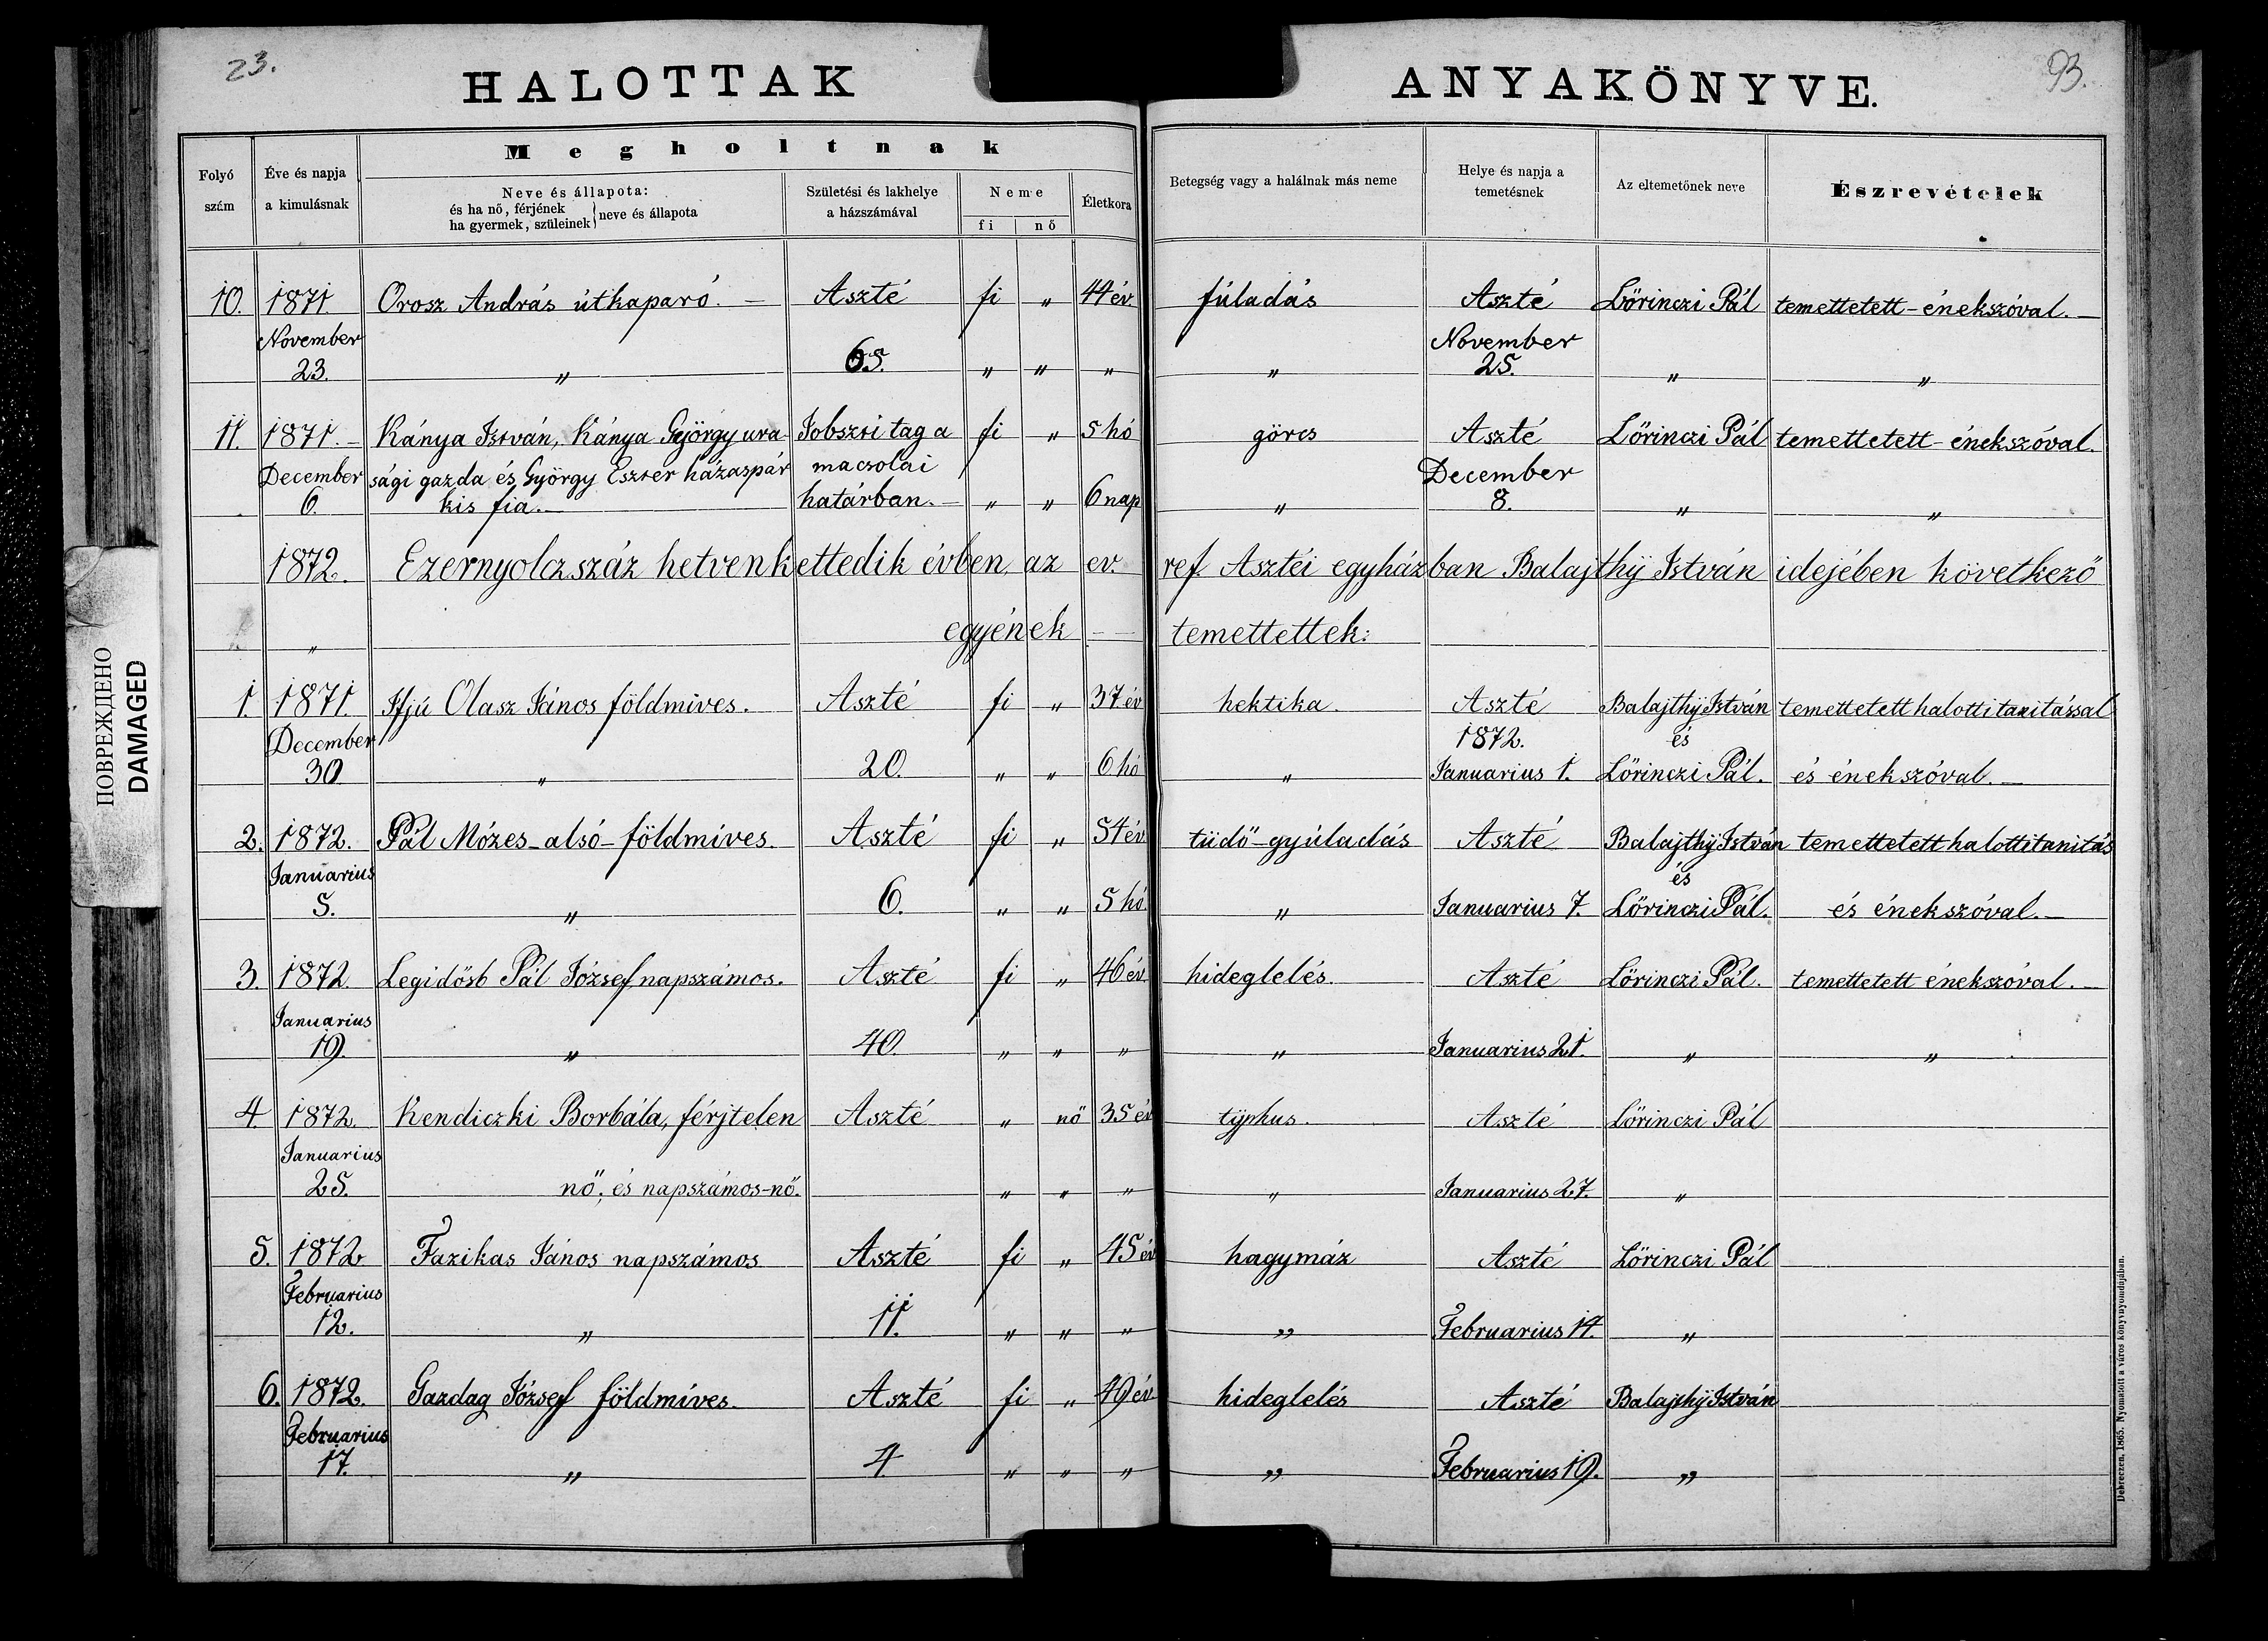 23.
93.
HALOTTAK ANYAKÖNYVE.
Megholtnak
Folyó szám
Éve és napja a kimulásnak
Neve és állapota:
és ha nő, férjének
ha gyermek, szüleinek } neve és állapota
Születési és lakhelye a házszámával
Neme
fi nő
Életkora
Betegség vagy a halálnak más neme
Helye és napja a temetésnek
Az eltemetőnek neve
Észrevételek
10. 1871. Orosz András útkaparó. — Aszté fi „ 44 év fúladás Aszté Lőrinczi Pál temettetett-énekszóval. —
November November
23. „ 65. „ „ „ „ 25. „ „
11. 1871. — Kánya István, Kánya György ura Jobszri tag a fi „ 5 hó görcs Aszté Lőrinczi Pál temettetett-énekszóval.
December sági gazda és György Eszter házaspár macsolai December
6. kis fia. — határban. — „ „ 6 nap „ 8. „ „
1872. Ezernyolczszáz hetvenkettedik évben, az ev. ref. Asztéi egyházban Balajthÿ István idejében következő
„ egyének — temettettek:
1. 1871. Ifjú Olasz János földmíves. Aszté fi „ 37 év hektika. Aszté Balajthÿ István temettetett halotti tanitással
December 1872. és
30 „ 20. „ „ 6 hó „ Januarius 1. Lőrinczi Pál. és énekszóval. —
2. 1872. Pál Mózes-alsó-földmíves. Aszté fi „ 54 év tüdő-gyúladás Aszté Balajthÿ István temettetett halotti tanitás
Januarius és
5. „ 6. „ „ 5 hó. „ Januarius 7. Lőrinczi Pál. és énekszóval. —
3. 1872 Legidősb Pál József napszámos. Aszté fi „ 46 év hideglelés. Aszté Lőrinczi Pál. temettetett énekszóval. —
Januarius
19. „ 40. „ „ „ „ Januarius 21. „ „
4 1872. Kendiczki Borbála, férjtelen Aszté „ nő 35 év tÿphus. Aszté Lőrinczi Pál
Januarius
25. nő, és napszámos-nő. „ „ „ „ Januarius 27. „
5. 1872 Fazikas János napszámos Aszté fi „ 45 év hagymáz Aszté Lőrinczi Pál
Februarius
12. „ 11. „ „ „ „ Februarius 14. „
6. 1872. Gazdag József földmíves. Aszté fi „ 49 év hideglelés Aszté Balajthÿ István
Februarius
17. „ 4 „ „ „ „ Februarius 19. „
ПОВРЕЖДЕНО
DAMAGED
Debreczen, 1865. Nyomatott a város könyvnyomdájában.